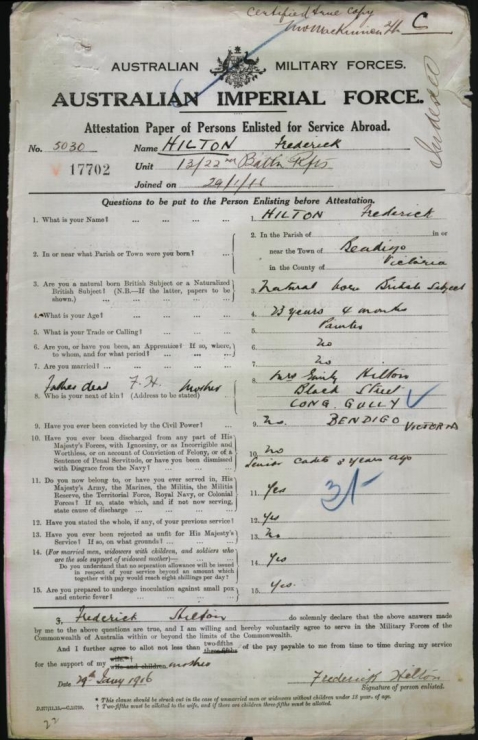 Certified true copy
C
AUSTRALIAN MILITARY FORCES.
AUSTRALIAN IMPERIAL FORCE.
Indexed
Attestation Paper of Persons Enlisted for Service Abroad.
No. 5030 Name HILTON Frederick
17702 Unit 13/22nd Battn Rfts
Joined on 29/1/16
Questions to be put to the Person Enlisting before Attestation.
1. What is your Name? ... ... ... ... 1. HILTON Frederick
2. In or near what Parish or Town were you born? ... 2. In the Parish of in or
near the Town of Bendigo
in the County of Victoria
3. Are you a natural born British Subject or a Naturalized
British Subject? (N.B.—If the latter, papers to be
shown.) ... 3. Natural born British Subject
4. What is your Age? ... 4. 23 years 4 months
5. What is your Trade or Calling? ... 5. Painter
6. Are you, or have you been, an Apprentice? If so, where,
to whom, and for what period? ... 6. No
7. Are you married? ... 7. No
Father dead F.H. Mother
8. Who is your next of kin? (Address to be stated) 8. Mrs Emily Hilton
Black Street
LONG GULLY
BENDIGO VICTORIA
9. Have you ever been convicted by the Civil Power? ... 9. No.
10. Have you ever been discharged from any part of His
Majesty's Forces, with Ignominy, or as Incorrigible and
Worthless, or on account of Conviction of Felony, or of a
Sentence of Penal Servitude, or have you been dismissed
with Disgrace from the Navy? ... 10. No
11. Do you now belong to, or have you ever served in, His
Majesty's Army, the Marines, the Militia, the Militia
Reserve, the Territorial Force, Royal Navy, or Colonial
Forces? If so, state which, and if not now serving,
state cause of discharge ... Senior Cadets 3 years ago
11. Yes
3/-
12. Have you stated the whole, if any, of your previous service? 12. Yes
13. Have you ever been rejected as unfit for His Majesty's
Service? If so, on what grounds? ... 13. No
14. (For married men, widowers with children, and soldiers who
are the sole support of widowed mother)—
Do you understand that no separation allowance will be issued
in respect of your service beyond an amount which
together with pay would reach eight shillings per day? 14. Yes
15. Are you prepared to undergo inoculation against small pox
and enteric fever? ... 15. Yes.
I, Frederick Hilton do solemnly declare that the above answers made
by me to the above questions are true, and I am willing and hereby voluntarily agree to serve in the Military Forces of the
Commonwealth of Australia within or beyond the limits of the Commonwealth.
And I further agree to allot not less than two-fifths three-fifths of the pay payable to me from time to time during my service
for the support of my wife wife and children mother
Date 29th Jany 1916 Frederick Hilton
Signature of person enlisted.
* This clause should be struck out in the case of unmarried men or widowers without children under 18 year of age.
† Two-fifths must be allotted to the wife, and if there are children three-fifths must be allotted.